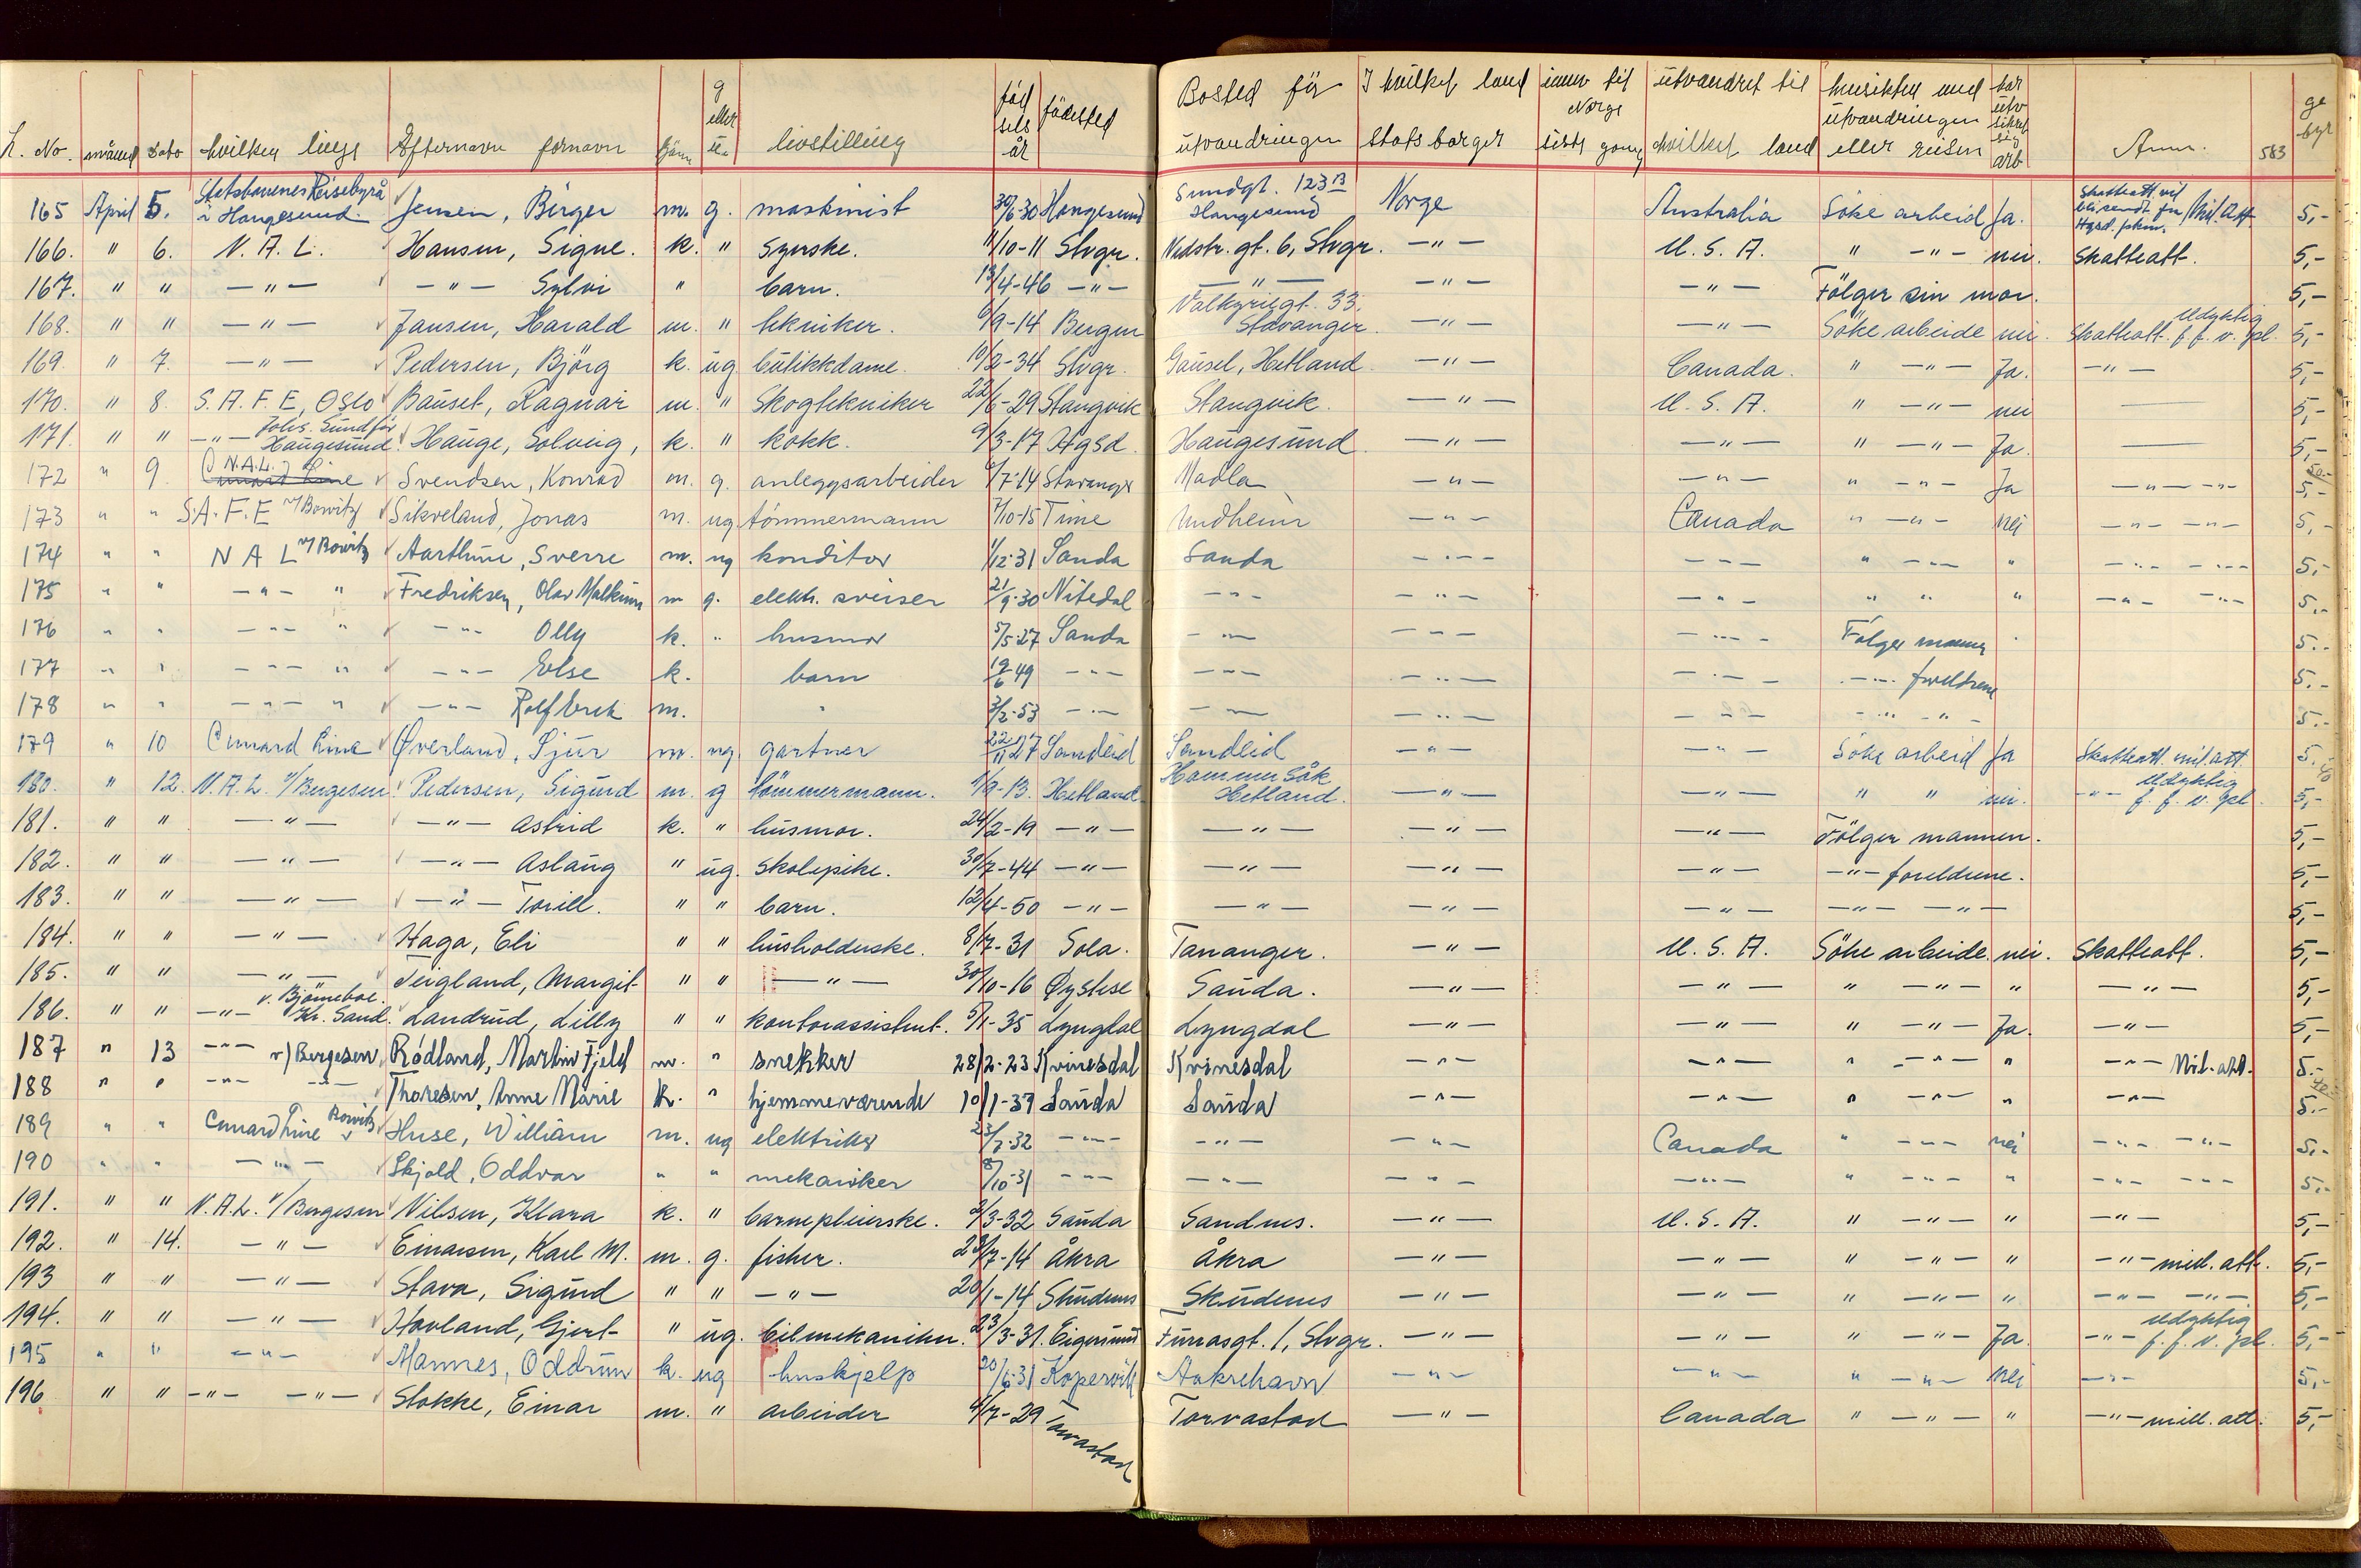 L. No. måned dato hvilken linje Efternavn fornavn kjønn g eller u. livsstilling fød sels år fødested Bosted før utvandringen I hvilket land Stats borger innv til Norge siste gang utvandret til hvilket land hensikten med utvandringen eller reisen har utv sikret sig arb Anm. 583 ge byr
165 April 5. Statsbanenes Reisebyrå i Haugesund. Jensen, Birger m. g. maskinist 30/6-30 Haugesund Sundgt. 123 B Haugesund Norge Australia Söke arbeid Ja. Skatteatt vil bli sendt fra Hgsd. fkm. / Mil. Att. 5,-
166. " 6. N. A. L. Hansen, Signe. k. " syerske. 11/10-11 Stvgr. Nedstr. gt. 6, Stvgr. -"- U. S. A. " -"- nei. Skatteatt. 5,-
167. " " -"- -"- Sylvi " barn. 13/4-46 -"- -"- -"- -"- Fölger sin mor. 5,-
168. " " -"- Jansen, Harald m. " tekniker. 6/9-14 Bergen Valkyriegt. 33. Stavanger. -"- -"- Söke arbeide nei. Skatteatt. Udyktig f. f. v. gel. 5,-
169. " 7. -"- Pedersen, Björg k. ug butikkdame. 10/2-34 Stvgr. Gausel, Hetland -"- Canada. " -"- Ja. -"- 5,-
170. " 8. S. A. F. E, Oslo Bäuset, Ragnar m. " Skogtekniker 22/6-29 Stangvik Stangvik. -"- U. S. A. " -"- nei — 5,-
171. " " -"- Johs. Sundfør Haugesund. Hauge, Solveig, k. " kokk. 9/3-17 Hgsd. Haugesund -"- -"- " -"- Ja. — 5,-
172 " 9 (N.A.L.) Cunard Line Svendsen, Konrad m. g. anleggsarbeider 6/7-14 Stavanger Madla -"- -"- " -"- Ja -"- -"- 5,-
173 " " S.A.F.E v/Bowitz Sikveland, Jonas m. ug tømmermann 7/10-15 Time Undheim -"- Canada " -"- nei -"- -"- 5,-
174 " " N A L v/Bowitz Aarthun, Sverre m. ug konditor 1/12-31 Sauda Sauda -"- -"- " -"- " -"- -"- 5,-
175 " " -"- " Fredriksen, Olav Malkum m g. elektr. sveiser 21/9-30 Nitedal -"- -"- -"- " " " -"- -"- 5,-
176 " " -"- " -"- Olly k. " husmor 5/5-27 Sauda -"- -"- -"- Følger mannen 5,-
177 " " -"- " -"- Else k. barn 19/6 49 -"- -"- -"- -"- -"- foreldrene 5,-
178 " " -"- " -"- Rolf Erik m. " 3/2-53 -"- -"- -"- -"- -"- -"- 5,-
179 " 10 Cunard Line Øverland, Sjur m. ug. gartner 22/11 27 Sandeid Sandeid -"- -"- Söke arbeid Ja Skatteatt. mil. att. 5,-
180. " 12. N. A. L. v/Bergesen Pedersen, Sigurd m. g tömmermann. 1/9-13. Hetland Hetland. -"- -"- " " nei. -"- Udyktig f. f. v. gel. 5,-
181. " " -"- -"- Astrid k. " husmor. 24/2-19 -"- -"- -"- -"- Fölger mannen. 5,-
182. " " -"- -"- Aslaug " ug. skolepike. 30/7-44 -"- -"- -"- -"- -"- foreldrene. 5,-
183. " " -"- -"- Torill. " " barn. 12/4-50 -"- -"- -"- -"- -"- -"- 5,-
184. " " -"- Haga, Eli " " husholderske. 8/7-31 Sola. Tananger. -"- U. S. A. Söke arbeide. nei. Skatteatt. 5,-
185. " " -"- Teigland, Margit " " -"- 30/10-16 Øystese Sauda. -"- -"- " -"- " -"- 5,-
186. " " -"- v. Björneboe. Kr. Sand. Landrud, Lilly " " kontorassistent. 5/1-35 Lyngdal Lyngdal -"- -"- " -"- Ja. -"- 5,-
187 " 13 -"- v/Bergesen, Rødland, Martin Fjeld m. " snekker 28/2-23 Kvinesdal Kvinesdal -"- -"- " -"- " -"- Mil. att. 5,-
188 " " -"- -"- Thoresen, Anne Marie k. " hjemmeværende 10/1-37 Sauda Sauda -"- -"- " -"- " -"- 5,-
189 " " Cunard Line v Bowitz Huse, William m. ug elektriker 23/7-32 -"- -"- -"- Canada " -"- nei -"- -"- 5,-
190 " " -"- Skjold, Oddvar " " mekaniker 8/10-31 -"- -"- -"- -"- " -"- " -"- -"- 5,-
191. " " N. A. L. v/Bergesen Nilsen, Klara k. " barnepleierske. 2/3-32 Sauda Sandnes. -"- U. S. A. " -"- " -"- 5,-
192. " 14. -"- Einarsen, Karl M. m. g. fisker. 28/7-14 Åkra Åkra -"- -"- " -"- " -"- mil. att. 5,-
193 " " -"- Stava, Sigurd " " -"- 20/1-14 Skudenes Skudenes -"- -"- " -"- " -"- -"- 5,-
194. " " -"- Hovland, Gjert " ug. bilmekaniker. 23/3-31. Eigersund Furrasgt. 1, Stvgr. -"- -"- " -"- Ja. -"- Udyktig f. f. v. gel. 5,-
195 " " -"- Mannes, Oddrun k. ug hushjelp 20/6-31 Kopervik Aakrehavn -"- -"- " -"- nei -"- 5,-
196 " " -"- -"- Stokke, Einar m. " arbeider 4/7-29 Torvastad Torvastad -"- Canada " -"- " -"- mill. att. 5,-